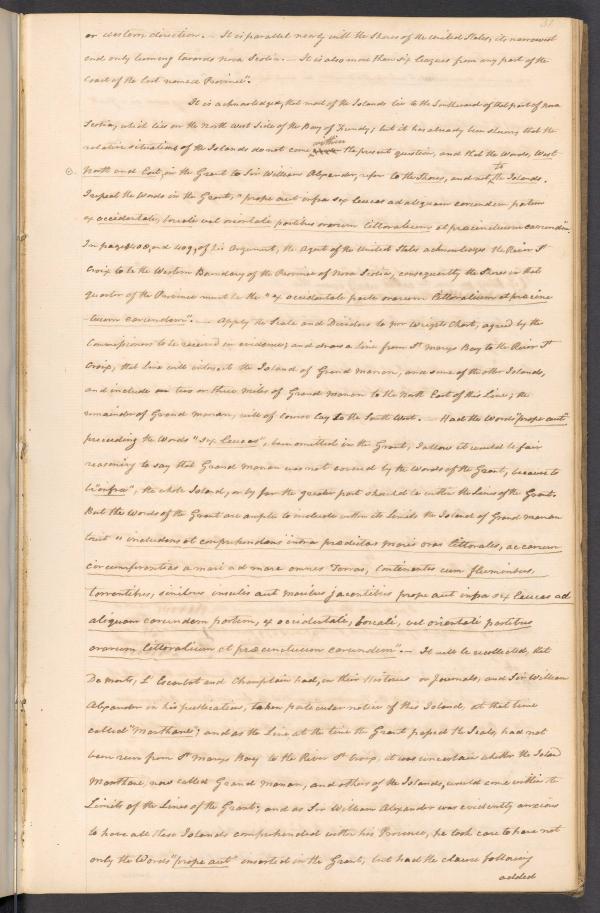 31
or western direction. — It is parallel nearly with the Shores of the United States, its narrowest
end only turning towards Nova Scotia. — It is also more than six leagues from any part of the
Coast of the last named Province".
It is acknowledged, that most of the Islands lie to the Southward of that part of Nova
Scotia, which lies on the North West Side of the Bay of Fundy; but it has already been shewn, that the
within
relative situations of the Islands do not come the present question, and that the Words, West
to
North and East, in the Grant to Sir William Alexander, refer to the Shores, and not the Islands.
I repeat the Words in the Grant, "prope aut infra sex leucas ad aliquam earundem partem
ex accidentale, boreali vel orientale partibus orarum littoralium et præcinctuum earundem".
In pages 408, and 409, of his Argument, the Agent of the United States acknowledges the River St
Croix to be the Western Boundary of the Province of Nova Scotia, consequently the Shores in that
quarter of the Province must be the "ex accidentale parte orarum littoralium et præcinc
-tuum earundem". — Apply the Scale and Dividers to Mr Wrights Chart, agreed by the
Commissioners to be received in evidence, and draw a line from St Marys Bay to the River St
Croix, that Line will intersect the Island of Grand Manan, and some of the other Islands,
and include two or three miles of Grand Manan to the North East of this Line; the
remainder of Grand Manan, will of course lay to the South West. — Had the Words "prope aut"
preceeding the Words "sex Leucas", been omitted in the Grant, I allow it would be fair
reasoning to say that Grand Manan was not covered by the Words of the Grant, because to
be "infra", the whole Island, or by far the greater part should be within the Lines of the Grant.
But the Words of the Grant are ample to include within its Limits the Island of Grand Manan
"includens et comprehendens intra prædictas maris oras littorales, ac earum
circumferentias a mari ad mare omnes Terras, continentes cum fluminibus,
torrentibus, sinibus insulis aut maribus jacentibus prope aut infra sex leucas ad
aliquam earundem partem, ex accidentale, boreali, vel orientale partibus
orarum littoralium et præcinctuum earundem". — It will be recollected, that
De monts, L'Escarbot and Champlain had, in their Histories or Journals, and Sir William
Alexander in his publication, taken particular notice of this Island, at that time
called "Manthane"; and as the Line, at the time the Grant passed the Seals, had not
been run from St Marys Bay to the River St Croix, it was uncertain whether the Island
Manthane, now called Grand Manan, and others of the Islands, would come within the
Limits of the Lines of the Grant; and as Sir William Alexander was evidently anxious
to have all these Islands comprehended within his Province, he took care to have not
only the Words "prope aut" inserted in the Grant, but had the clause following
added